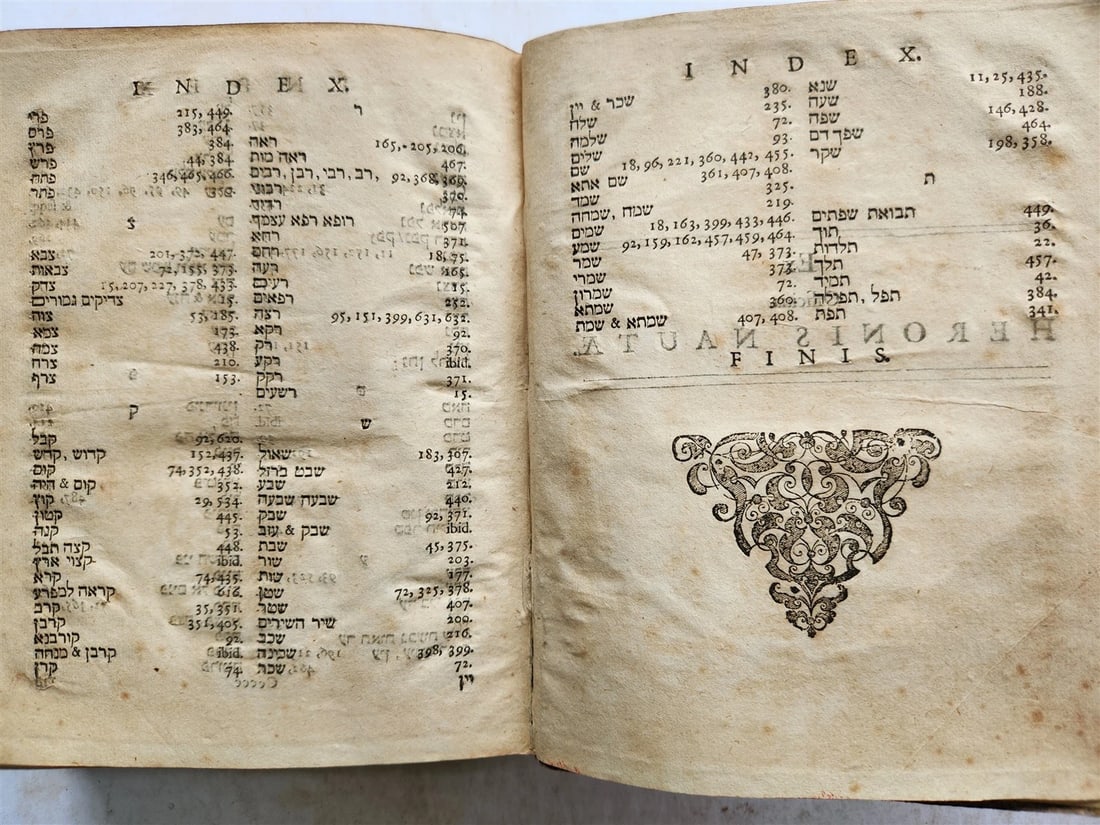 INDEX.
פרי 215, 449.
פרס 383, 464.
פרץ 384.
פרש 44, 384
פתח 346, 465, 466.
פתר 350.
צ
צבא 201, 372, 447.
צבאות 72, 155, 373.
צדק 15, 207, 227, 378, 433.
צדיקים גמורים 15.
צוה 53, 185.
צמא 173.
צמח 438.
צרח 210.
צרף 153.
ק
קבל 92, 620.
קדוש, קדש 152, 437.
קום 74, 352, 438.
קום & היה 352.
קוץ 29, 534
קטון 445.
קנה 53.
קצה תבל 448.
קצוי ארץ ibid.
קרא 74, 435.
קראה למפרע 616.
קרב 35, 351.
קרבן 351, 405.
קורבנא 92.
קרבן & מנחה ibid.
קרן 74.
ר
ראה 165, 205, 206,
ראה מות 467.
רב, רבי, רבן, רבים, 92, 368, 369.
רבוני 370.
רדיד 74.
רופא רפא עצמך 507
רחא 371.
רחם 18, 75.
רעה 265.
רעים 15.
רפאים 232.
רצה 95, 151, 399, 631, 632.
רקא 92.
רק 370.
רקע ibid.
רקק 371.
רשעים 15.
ש
שאול 183, 367.
שבט ברזל 427.
שבע 212.
שבעה שבעה 440.
שבק 92, 371.
שבק & עזב ibid.
שבת 45, 375.
שור 203.
שות 177.
שטן 72, 325, 378.
שטר 407.
שיר השירים 200.
שכב 216.
שכינה 398, 399.
שכת 72.
Ccccc
INDEX.
שכר & יין 380.
שלח 235.
שלמה 72.
שלים 93.
שם 18, 96, 221, 360, 442, 455.
שם אתא 361, 407, 408.
שמד 325.
שמח, שמחה 219.
שמים 18, 163, 399, 433, 446.
שמע 92, 159, 162, 457, 459, 464.
שמר 47, 373.
שמרי 373
שמרון 72.
שמתא 360.
שמתא & שמת 407, 408.
שנא 11, 25, 435.
שעה 188.
שפה 146, 428.
שפך דם 464.
שקר 198, 358.
ת
תבואת שפתים 449.
תוך 36.
תלדות 22.
תלך 457.
תמיד 42.
תפל, תפילה 384.
תפת 341.
FINIS.